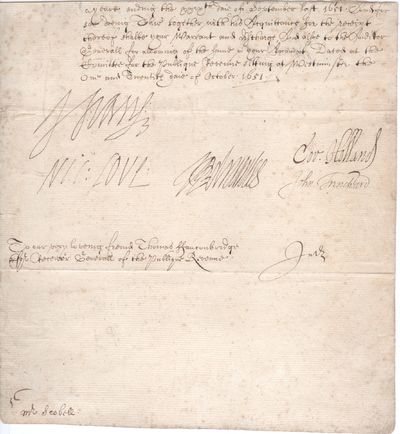 yeare ending the xxixth day of September last 1651. And for
soe doeing This together with his Acquittance for the receipt
thereof shalbe your Warrant and discharge And alsoe to the Auditor
Generall for allowing of the same in your Accompt Dated at the
Comittee for the Publique Revenue sitting at Westminster the
One and Twentith daie of October 1651.
Nic: Love
Cor: Holland
John Trenchard
To our very loveing freind Thomas Fauconbridge
Esqr Receivor Generall of the Publique Revenue.
mr Scobell